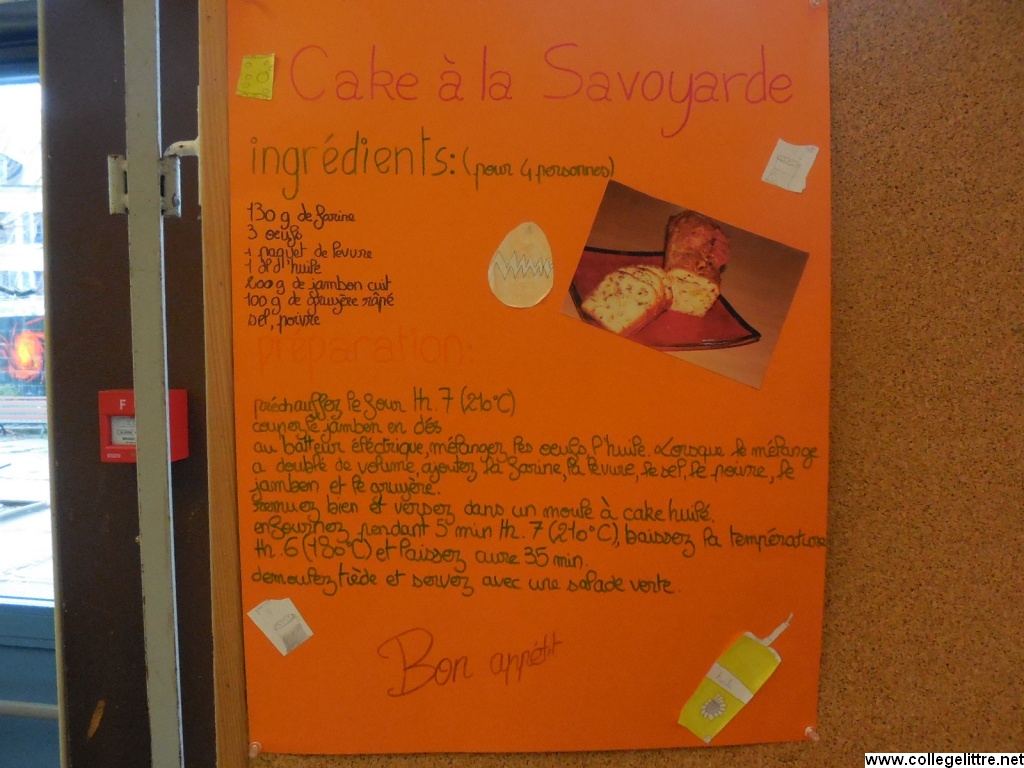 Cake à la Savoyarde
ingrédients: (pour 4 personnes)
130 g de farine
3 oeufs
1 paquet de levure
1 dl d'huile
200 g de jambon cuit
100 g de gruyère râpé
sel, poivre
préparation:
préchauffez le four th. 7 (210°C)
couper le jambon en dés
au batteur éléctrique, mélanger les oeufs, l'huile. Lorsque le mélange
a doublé de volume, ajoutez la farine, la levure, le sel, le poivre, le
jambon et le gruyère.
Remuez bien et versez dans un moule à cake huilé.
enfournez pendant 5 min th. 7 (210°C), baissez la température
th. 6 (180°C) et laissez cuire 35 min.
demoulez tiède et servez avec une salade verte.
Bon appétit
F
www.collegelittre.net